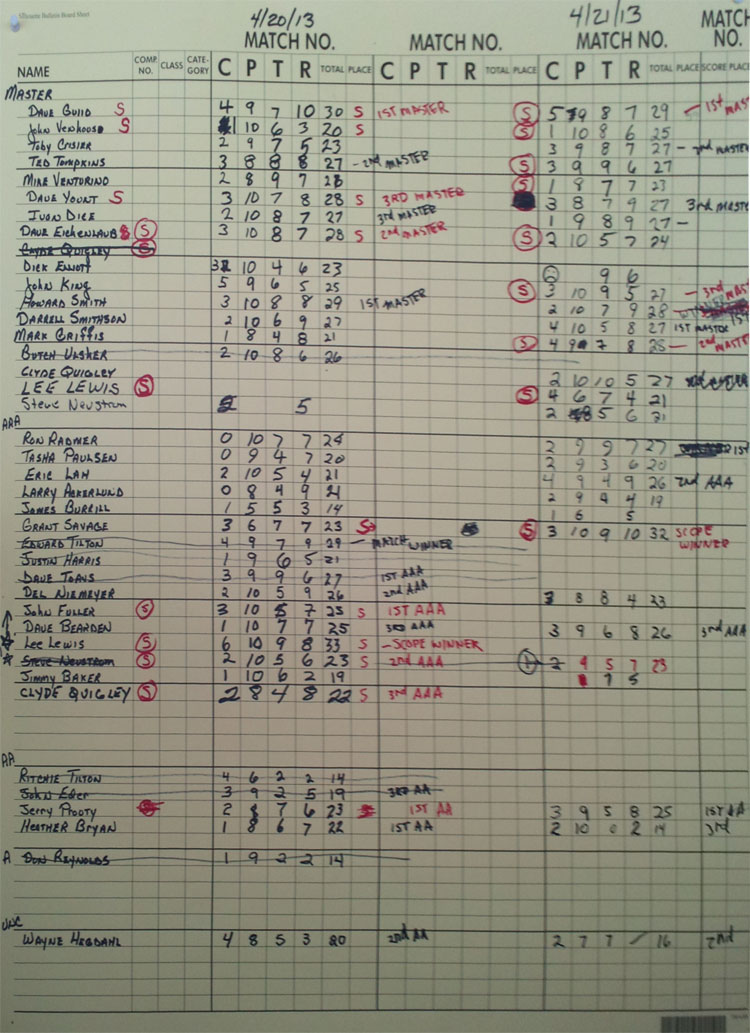 Silhouette Bulletin Board Sheet
4/20/13 4/21/13 MATCH
MATCH NO. MATCH NO. MATCH NO. NO.
NAME COMP. NO. CLASS CATE-GORY C P T R TOTAL PLACE C P T R TOTAL PLACE C P T R TOTAL PLACE SCORE PLACE
MASTER
DAVE GUIID S 4 9 7 10 30 S 1ST MASTER S 5 9 8 7 29 - 1st MAS
John Venhouse S 1 10 6 3 20 S S 1 10 8 6 25
Toby Crisler 2 9 7 5 23 3 9 8 7 27 - 2nd MASTER
TED TOMPKINS 3 8 8 8 27 - 2nd MASTER S 3 9 9 6 27
MIKE VENTURINO 2 8 9 7 S 1 8 7 7 23
DAVE YOUNT S 3 10 7 8 28 S 3RD MASTER 3 8 7 9 27 3rd MASTER
IVAN DICE 2 10 8 7 27 3rd MASTER 1 9 8 9 27 -
DAVE EICHENLAUB S S 3 10 8 7 28 S 2nd MASTER S 2 10 5 7 24
CLYDE QUIGLEY S
DICK Elliott 3 10 4 6 23 9 6
John King 5 9 6 5 25 S 3 10 9 5 27 - 3rd MAS
HOWARD SMITH 3 10 8 8 29 1ST MASTER 2 10 7 9 28
DARRELL SMITHSON 2 10 6 9 27 4 10 5 8 27 1ST MASTER
MARK GRIFFIS 1 8 4 8 21 S 4 9 7 8 28 - 2nd MAST
BUTCH ULSHER 2 10 8 6 26
CLYDE QUIGLEY 2 10 10 5 27
LEE LEWIS S S 4 6 7 4 21
Steve Neustrom 5 2 8 5 6 21
AAA
RON RADMER 0 10 7 7 24 2 9 9 7 27 1ST
TASHA PAULSEN 0 9 4 7 20 2 9 3 6 20
ERIC LAH 2 10 5 4 21 4 9 4 9 26 2nd AAA
LARRY ACKERLUND 0 8 4 9 21 2 9 4 4 19
JAMES BURRILL 1 5 5 3 14 1 6 5
GRANT SAVAGE 3 6 7 7 23 S S 3 10 9 10 32 SCOPE WINNER
EDWARD TILTON 4 9 7 9 29 - MATCH WINNER
JUSTIN HARRIS 1 9 6 5 21
DAVE TORVS 3 9 9 6 27 1ST AAA
DEL NIEMEYER 2 10 5 9 26 2nd AAA 3 8 8 4 23
JOHN FULLER S 3 10 5 7 25 S 1ST AAA
DAVE BEARDEN 1 10 7 7 25 3RD AAA 3 9 6 8 26 3rd AAA
Lee Lewis S 6 10 9 8 33 S - SCOPE WINNER
Steve Neustrom S 2 10 5 6 23 S 2nd AAA 2 9 5 7 23
Jimmy BAKER 1 10 6 2 19 7 5
CLYDE QUIGLEY S 2 8 4 8 22 S 3rd AAA
AA
RITCHIE TILTON 4 6 2 2 14
John Eder 3 9 2 5 19 3RD AA
Jerry Prooty 2 8 7 6 23 1ST AA 3 9 5 8 25 1ST AA
HEATHER BRYAN 1 8 6 7 22 1ST AA 2 10 0 2 14 3rd
A DON REYNOLDS 1 9 2 2 14
UNC
WAYNE HEGDAHL 4 8 5 3 20 2nd AA 2 7 7 / 16 2nd